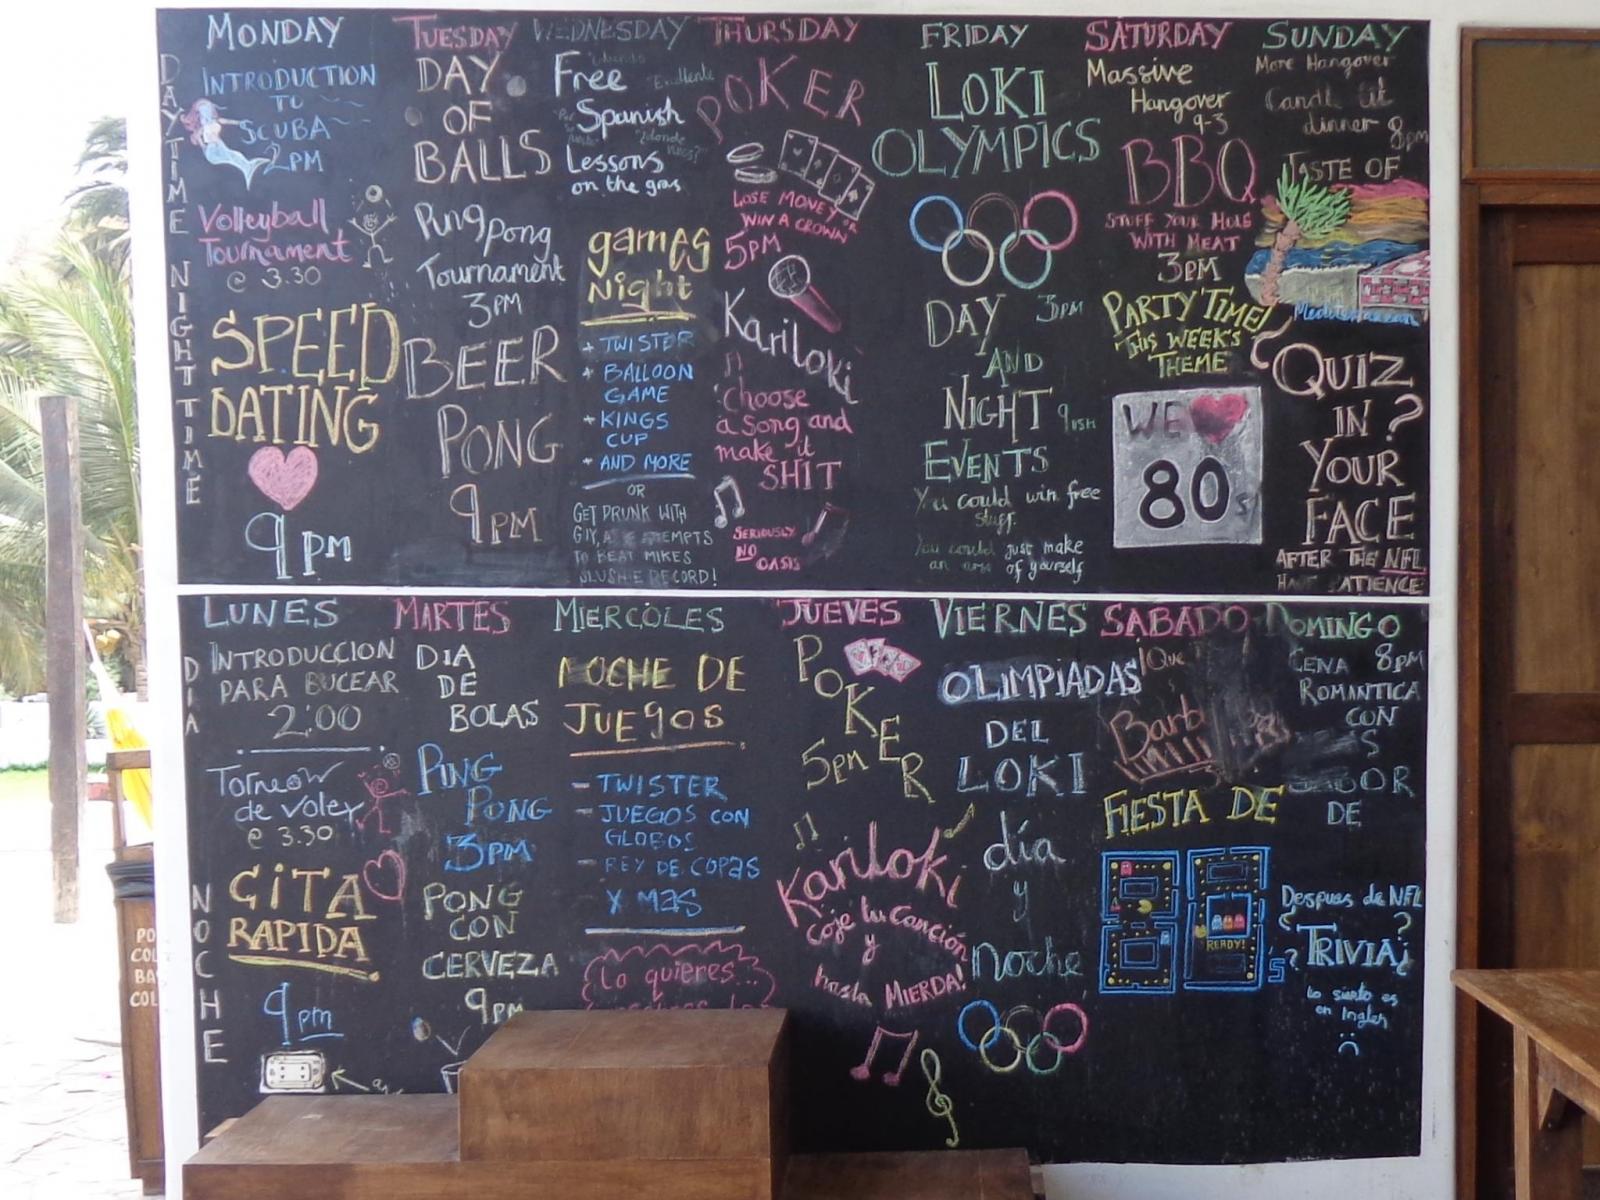 MONDAY
DAYTIME
INTRODUCTION
TO
SCUBA
2PM
Volleyball
Tournament
@ 3.30
NIGHT TIME
SPEED
DATING
9PM
TUESDAY
DAY
OF
BALLS
Ping Pong
Tournament
3PM
BEER
PONG
9PM
WEDNESDAY
Free
"Exellente"
Spanish
Lessons
on the gras
games
Night
+ TWISTER
+ BALLOON
GAME
+ KINGS
CUP
+ AND MORE
OR
GET DRUNK WITH
TO BEAT MIKES
SLUSHIE RECORD!
THURSDAY
POKER
LOSE MONEY OR
WIN A CROWN
5PM
Kariloki
choose
a song and
make it
SHIT
SERIOUSLY
NO
OASIS
FRIDAY
LOKI
OLYMPICS
DAY 3PM
AND
NIGHT 9ISH
EVENTS
You could win free
stuff.
You could just make
an arse of yourself
SATURDAY
Massive
Hangover
9-3
BBQ
STUFF YOUR HOLE
WITH MEAT
3PM
PARTY TIME!
THIS WEEK'S
THEME
WE
80s
SUNDAY
More Hangover
Candl lit
dinner 8pm
TASTE OF
Mediterranean
QUIZ
IN ?
YOUR
FACE
AFTER THE NFL
HAVE PATIENCE
LUNES
DIA
INTRODUCCION
PARA BUCEAR
2:00
Torneo
de voley
@ 3.30
NOCHE
CITA
RAPIDA
9pm
MARTES
DIA
DE
BOLAS
PING
PONG
3PM
PONG
CON
CERVEZA
9PM
MIERCOLES
NOCHE DE
JUEGOS
- TWISTER
- JUEGOS CON
GLOBOS
- REY DE COPAS
Y MAS
Lo quieres...
JUEVES
POKER
5pm
Kariloki
coje tu canción
y
hasta MIERDA!
VIERNES
OLIMPIADAS
DEL
LOKI
día
y
noche
SABADO
¡Que
Barb
FIESTA DE
READY!
's
DOMINGO
CENA 8PM
ROMANTICA
CON
DE
Despues de NFL
¿TRIVIA?
Lo siento es
en Ingles
PO
COL
BA
COL